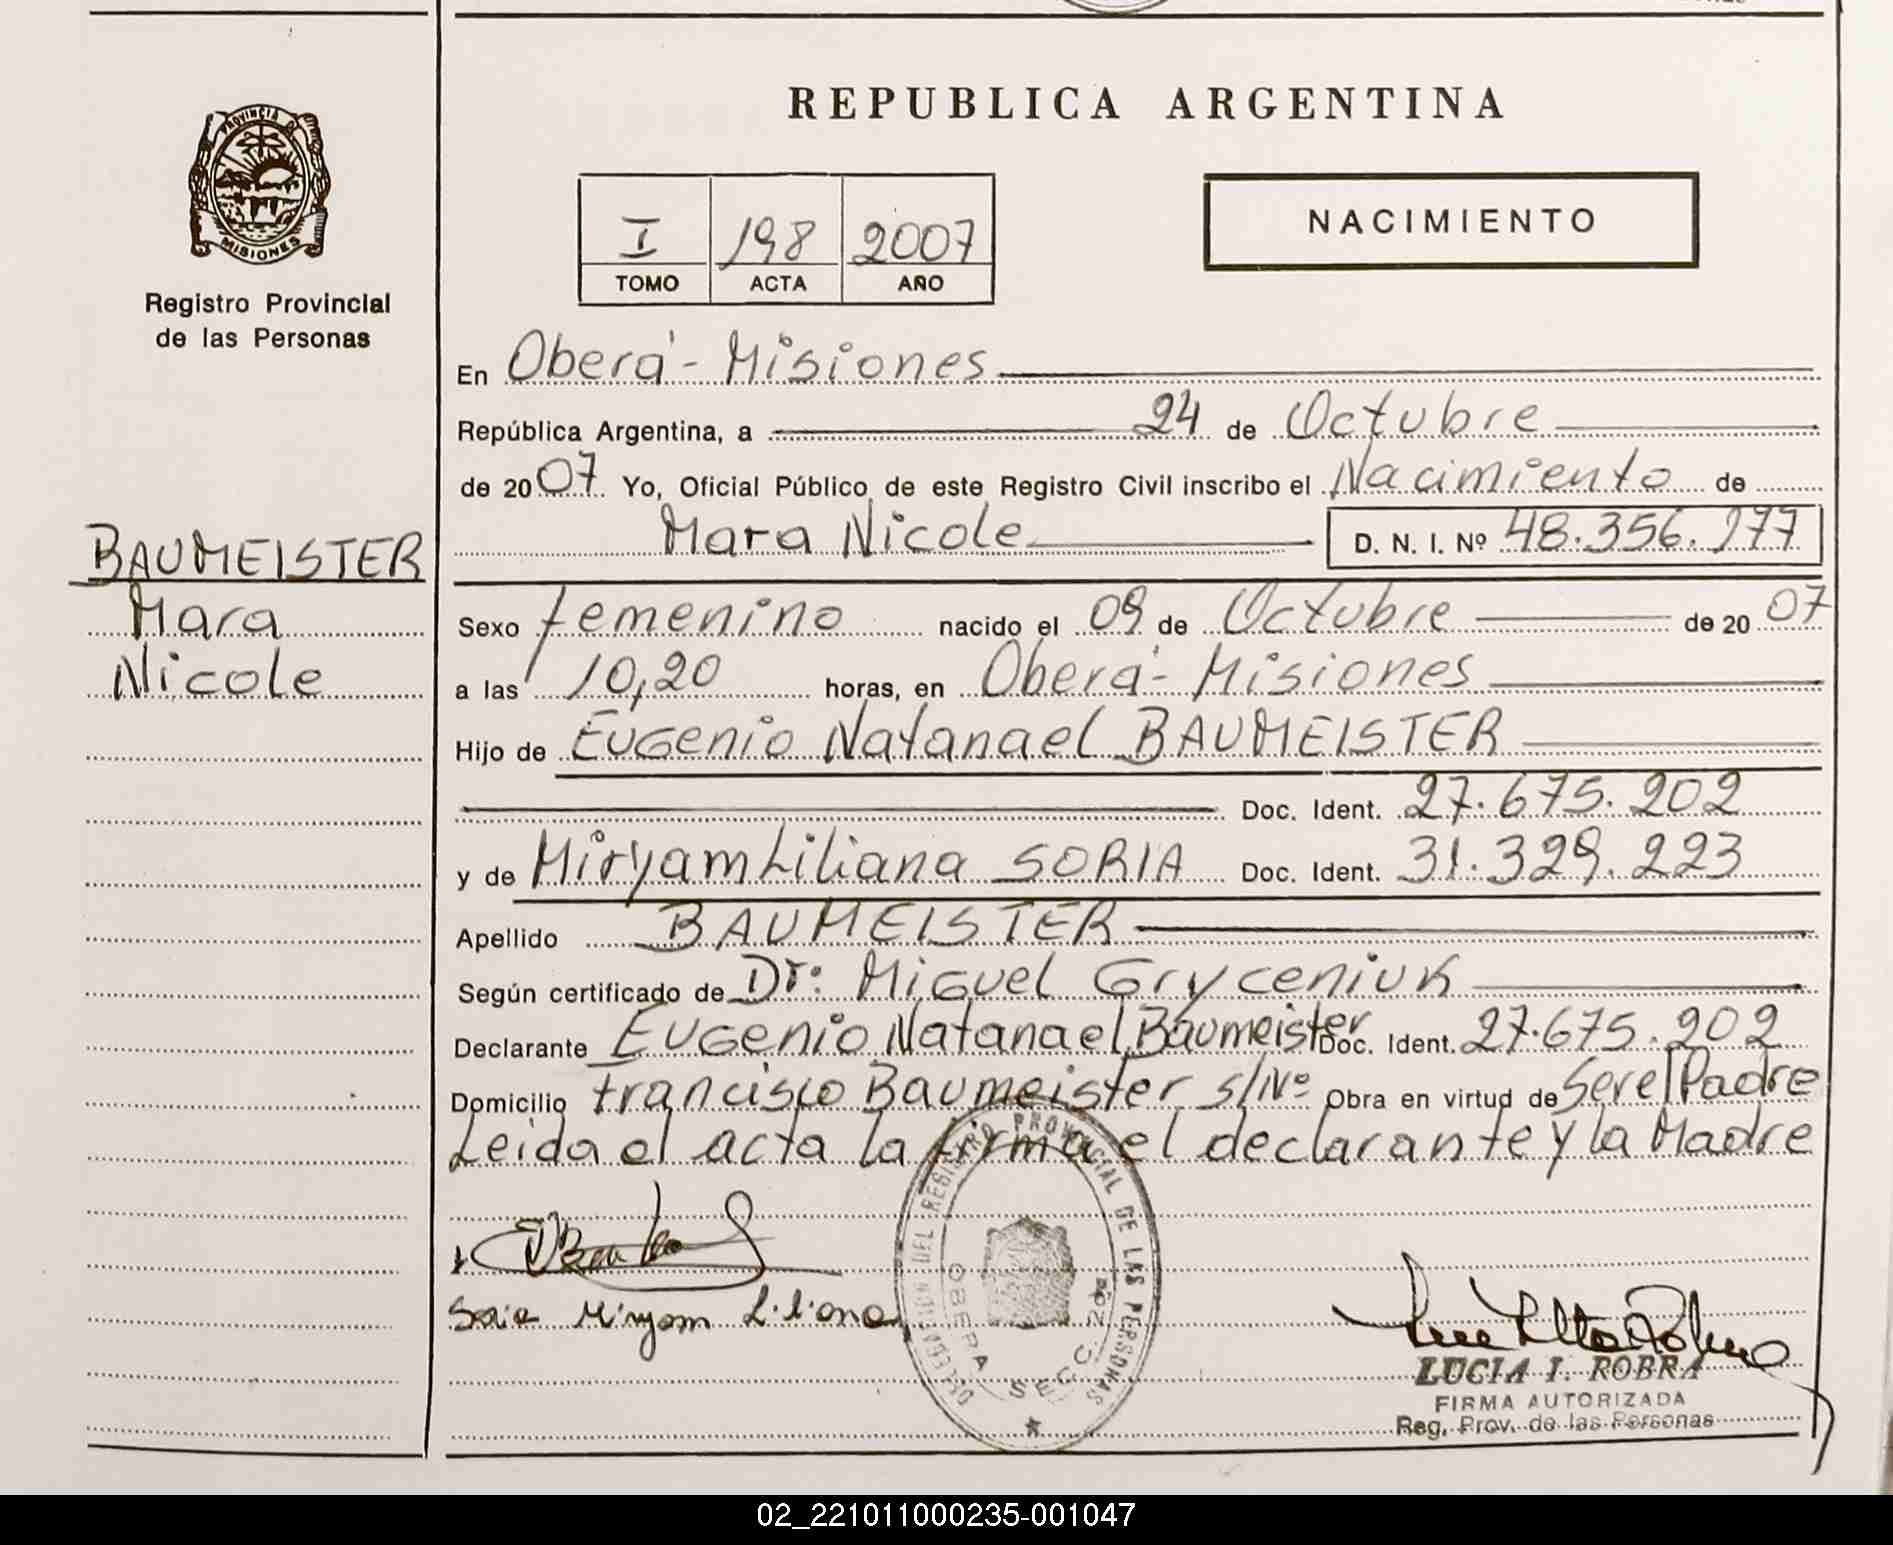 REPUBLICA ARGENTINA
PROVINCIA DE
MISIONES
Registro Provincial
de las Personas
I 198 2007
TOMO ACTA AÑO
NACIMIENTO
En Oberá - Misiones
República Argentina, a 24 de Octubre
de 2007 Yo, Oficial Público de este Registro Civil inscribo el Nacimiento de
Mara Nicole D. N. I. Nº 48.356.177
BAUMEISTER
Mara
Nicole
Sexo femenino nacido el 09 de Octubre de 2007
a las 10,20 horas, en Oberá - Misiones
Hijo de Eugenio Natanael BAUMEISTER
Doc. Ident. 27.675.202
y de Miryam Liliana SORIA Doc. Ident. 31.329.223
Apellido BAUMEISTER
Según certificado de Dr: Miguel Gryceniuk
Declarante Eugenio Natanael Baumeister Doc. Ident. 27.675.202
Domicilio francisco Baumeister s/Nº Obra en virtud de Ser el Padre
Leida el acta la firma el declarante y la Madre
Soria Miryam Liliana
DEL REGISTRO PROVINCIAL DE LAS PERSONAS
OBERA SECC.
LUCIA I. ROBRA
FIRMA AUTORIZADA
Reg. Prov. de las Personas
02_221011000235-001047